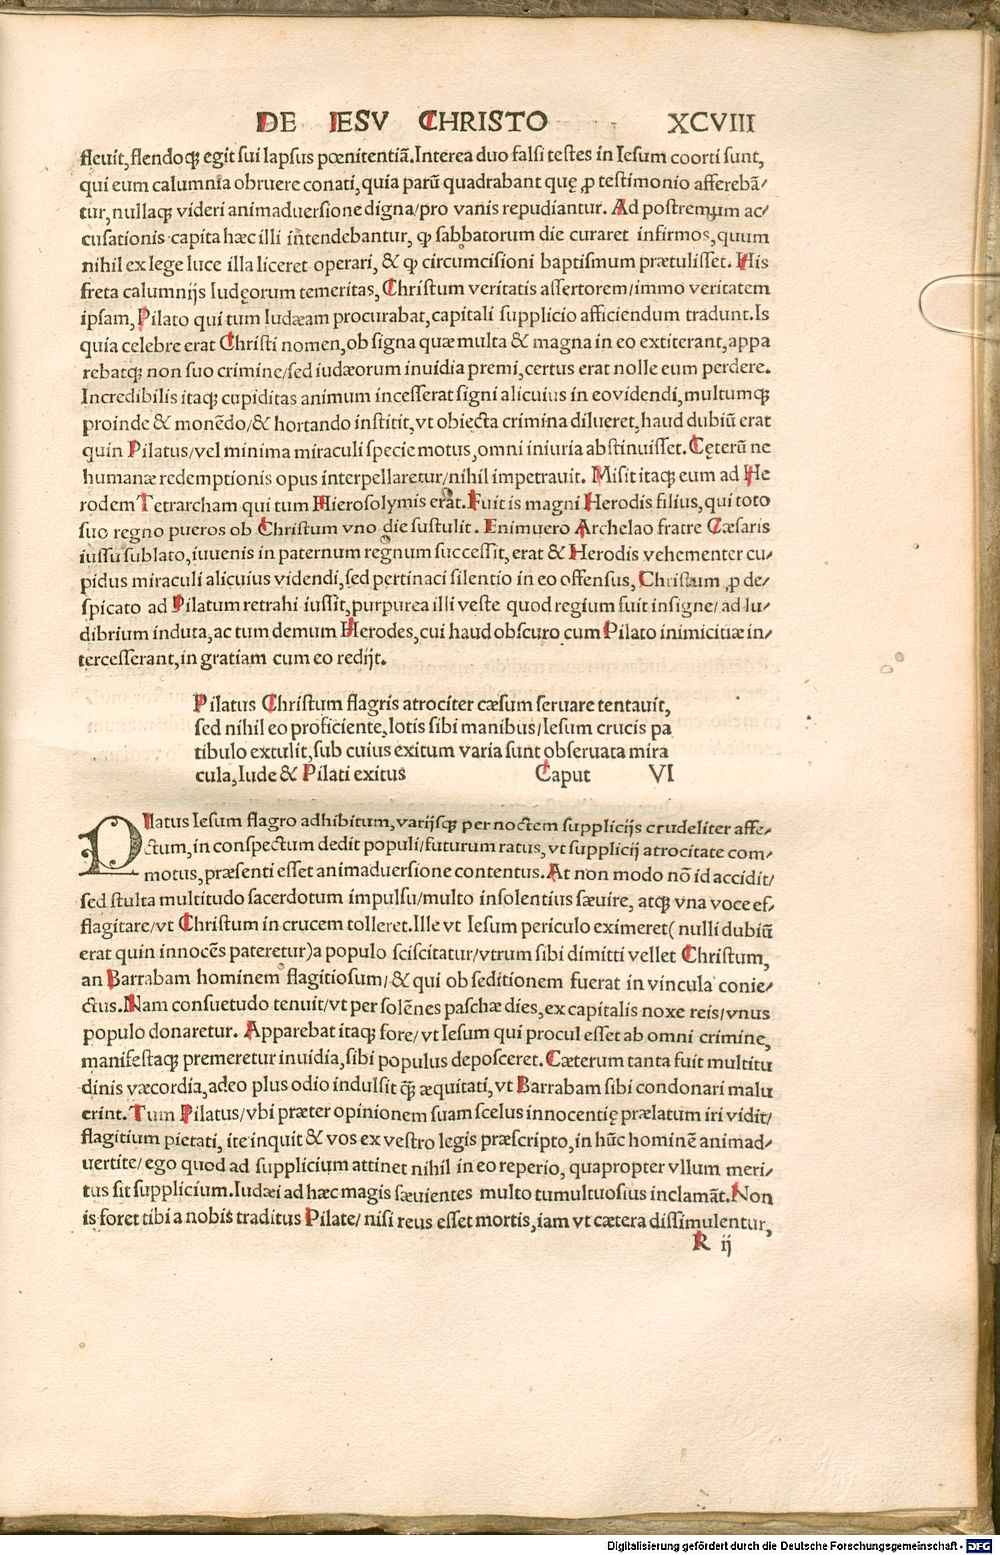 DE IESV CHRISTO XCVIII
fleuit, flendoqȝ egit sui lapsus pœnitentiā. Interea duo falsi testes in Iesum coorti sunt,
qui eum calumnia obruere conati, quia parū quadrabant quę ꝓ testimonio afferebā/
tur, nullaqȝ videri animaduersione digna/pro vanis repudiantur. Ad postremum ac/
cusationis capita hæc illi intendebantur, ꝙ sabbatorum die curaret infirmos, quum
nihil ex lege luce illa liceret operari, & ꝙ circumcisioni baptismum prætulisset. His
freta calumnijs Iudęorum temeritas, Christum veritatis assertorem/immo veritatem
ipsam, Pilato qui tum Iudæam procurabat, capitali supplicio afficiendum tradunt. Is
quia celebre erat Christi nomen, ob signa quæ multa & magna in eo extiterant, appa
rebatqȝ non suo crimine/sed iudæorum inuidia premi, certus erat nolle eum perdere.
Incredibilis itaqȝ cupiditas animum incesserat signi alicuius in eo videndi, multumqȝ
proinde & monēdo/& hortando institit, vt obiecta crimina dilueret, haud dubiū erat
quin Pilatus/vel minima miraculi specie motus, omni iniuria abstinuisset. Cęterū ne
humanæ redemptionis opus interpellaretur/nihil impetrauit. Misit itaqȝ eum ad He
rodem Tetrarcham qui tum Hierosolymis erat. Fuit is magni Herodis filius, qui toto
suo regno pueros ob Christum vno die sustulit. Enimuero Archelao fratre Cæsaris
iussu sublato, iuuenis in paternum regnum successit, erat & Herodis vehementer cu/
pidus miraculi alicuius videndi, sed pertinaci silentio in eo offensus, Christum ꝓ de/
spicato ad Pilatum retrahi iussit, purpurea illi veste quod regium fuit insigne/ad lu/
dibrium induta, ac tum demum Herodes, cui haud obscuro cum Pilato inimicitiæ in/
tercesserant, in gratiam cum eo redijt.
Pilatus Christum flagris atrociter cæsum seruare tentauit,
sed nihil eo proficiente, lotis sibi manibus/Iesum crucis pa
tibulo extulit, sub cuius exitum varia sunt obseruata mira
cula, Iude & Pilati exitus Caput VI
PIlatus Iesum flagro adhibitum, varijsqȝ per noctem supplicijs crudeliter affe/
ctum, in conspectum dedit populi/futurum ratus, vt supplicij atrocitate com/
motus, præsenti esset animaduersione contentus. At non modo nō id accidit/
sed stulta multitudo sacerdotum impulsu/multo insolentius sæuire, atqȝ vna voce ef/
flagitare/vt Christum in crucem tolleret. Ille vt Iesum periculo eximeret (nulli dubiū
erat quin innocēs pateretur) a populo sciscitatur/vtrum sibi dimitti vellet Christum,
an Barrabam hominem flagitiosum/& qui ob seditionem fuerat in vincula conie/
ctus. Nam consuetudo tenuit/vt per solēnes paschæ dies, ex capitalis noxe reis/vnus
populo donaretur. Apparebat itaqȝ fore/vt Iesum qui procul esset ab omni crimine,
manifestaqȝ premeretur inuidia, sibi populus deposceret. Cæterum tanta fuit multitu
dinis væcordia, adeo plus odio indulsit q̄ȝ æquitati, vt Barrabam sibi condonari malu
erint. Tum Pilatus/vbi præter opinionem suam scelus innocentię prælatum iri vidit/
flagitium pietati, ite inquit & vos ex vestro legis præscripto, in hūc hominē animad/
uertite/ego quod ad supplicium attinet nihil in eo reperio, quapropter vllum meri/
tus sit supplicium. Iudæi ad hæc magis sæuientes multo tumultuosius inclamāt. Non
is foret tibi a nobis traditus Pilate/nisi reus esset mortis, iam vt cætera dissimulentur,
R ij
Digitalisierung gefördert durch die Deutsche Forschungsgemeinschaft - DFG